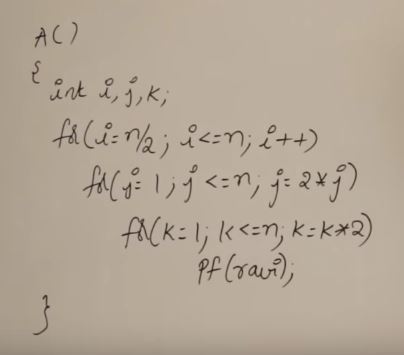 A()
{
int i, j, k;
for(i=n/2; i<=n; i++)
for(j=1; j<=n; j=2*j)
for(k=1; k<=n; k=k*2)
pf(ravi);
}